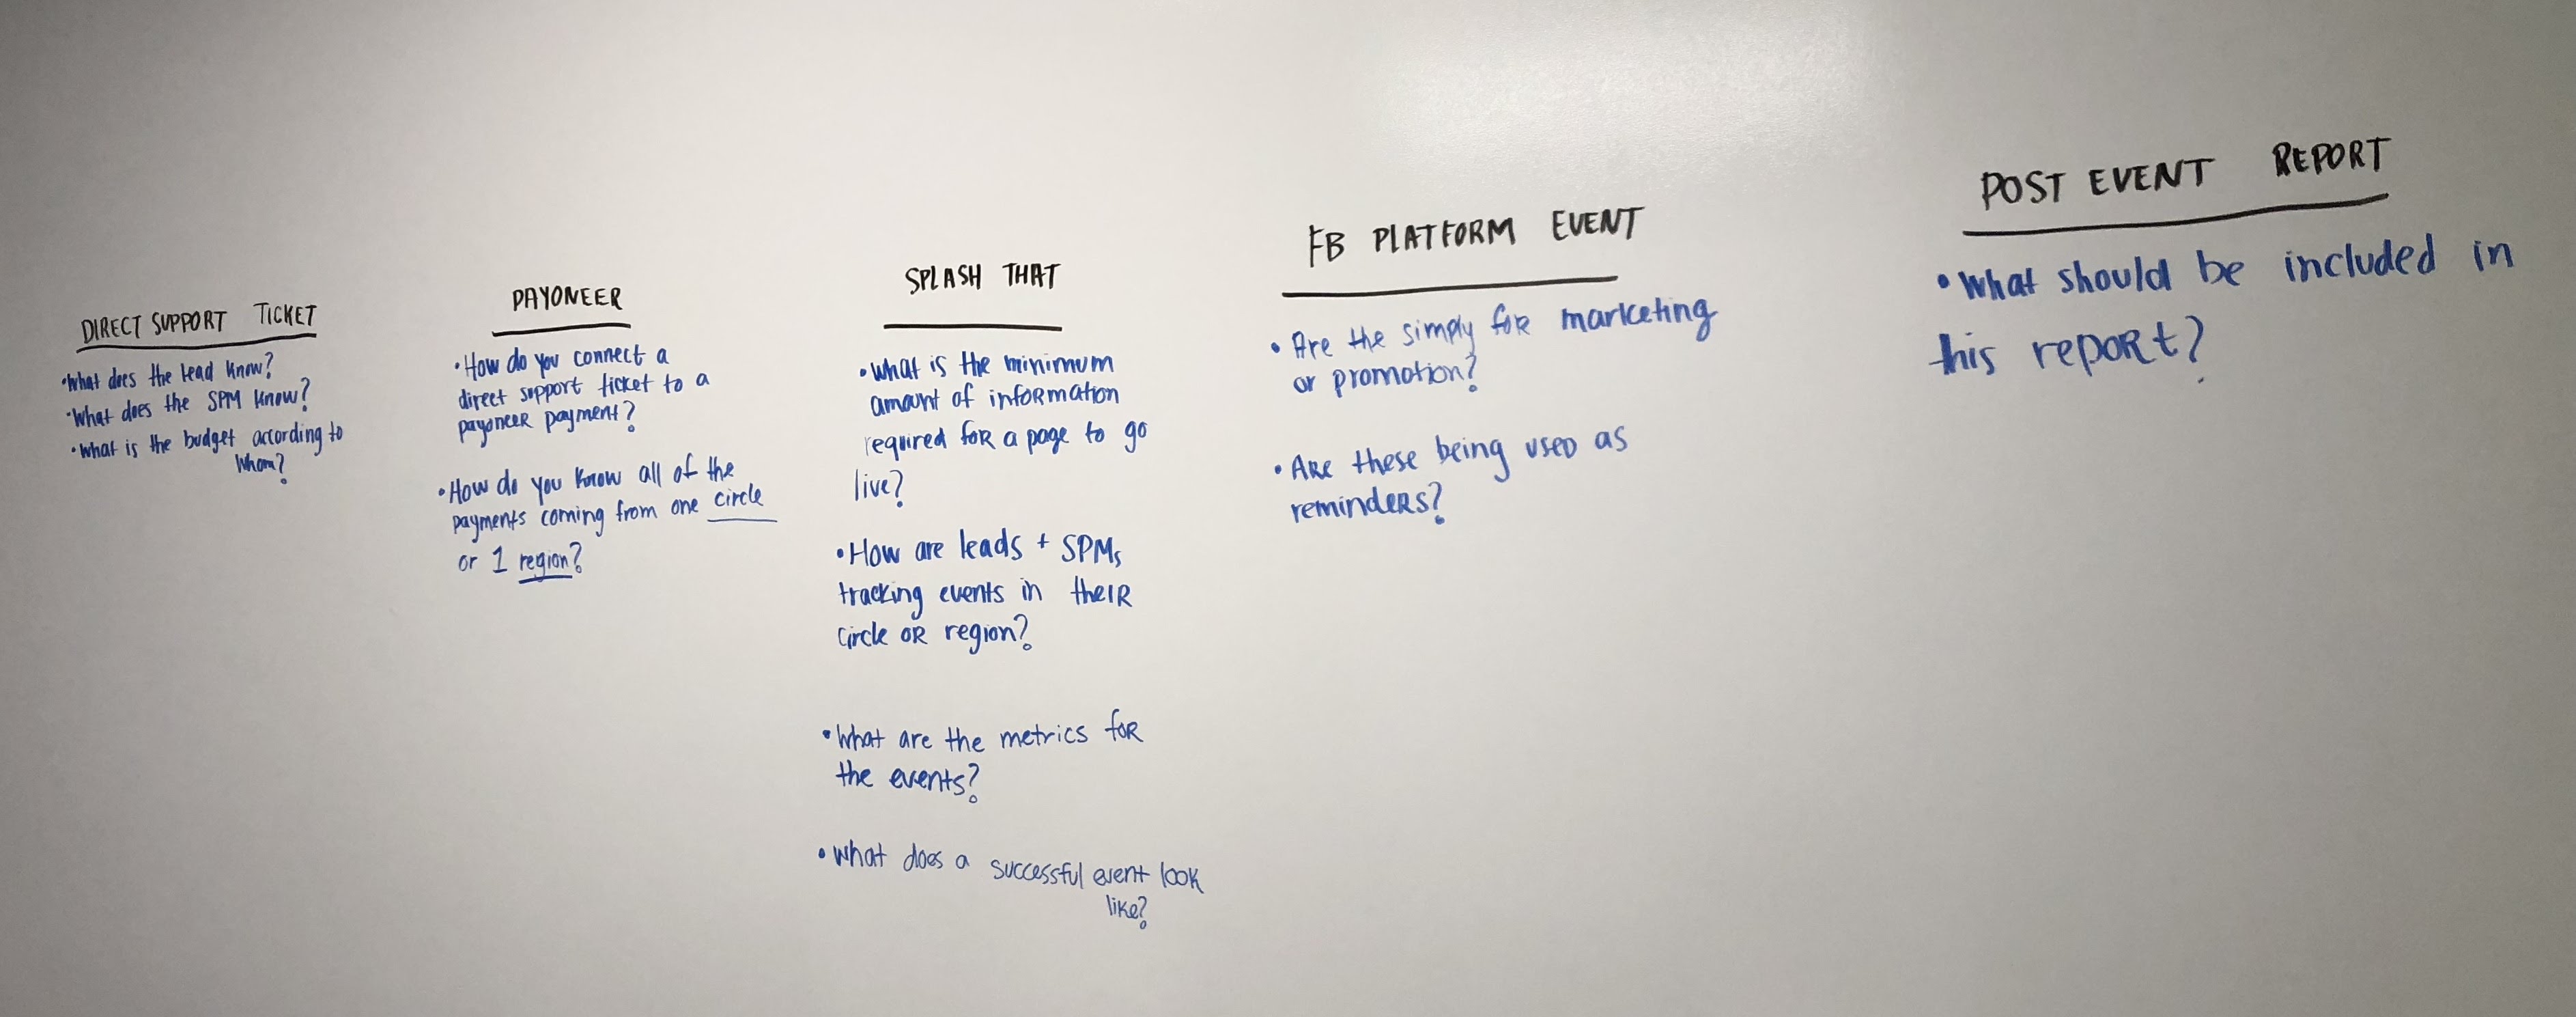 DIRECT SUPPORT TICKET
•What does the lead know?
•What does the SPM know?
•What is the budget according to
whom?
PAYONEER
•How do you connect a
direct support ticket to a
payoneer payment?
•How do you know all of the
payments coming from one circle
or 1 region?
SPLASH THAT
•What is the minimum
amount of information
required for a page to go
live?
•How are leads + SPMs
tracking events in their
circle or region?
•What are the metrics for
the events?
•What does a successful event look
like?
FB PLATFORM EVENT
•Are the simply for marketing
or promotion?
•Are these being used as
reminders?
POST EVENT REPORT
•What should be included in
this report?